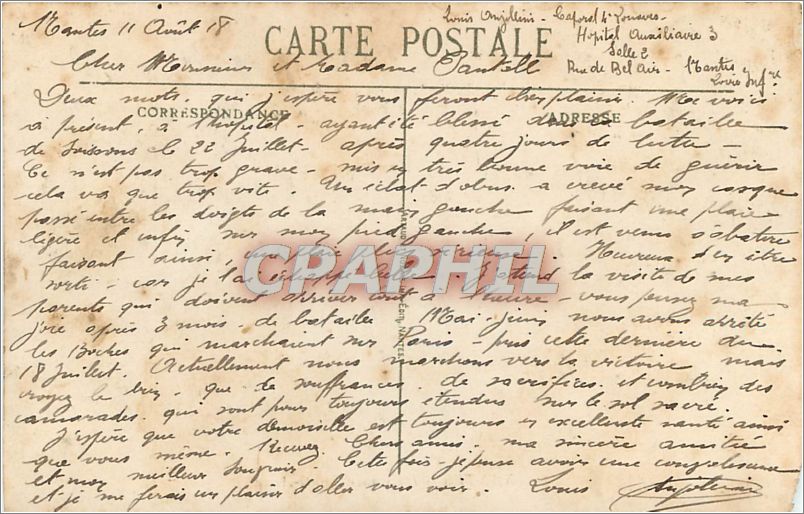 Nantes 11 Août 18
Louis - Caporal 4e Zouaves -
Hopital Auxiliaire 3
Salle 2
Rue de Bel Air - Nantes
Loire Infre
CARTE POSTALE
Cher Monsieur et Madame
Deux mots qui j'espère vous feront bien plaisir. Me voici
CORRESPONDANCE
ADRESSE
à présent à l'hôpital - ayant été blessé bataille
de Soissons le 22 Juillet - après quatre jours de lutte -
Ce n'est pas trop grave - mis en très bonne voie de guérir
cela va que trop vite. Un éclat d'obus a crevé mon casque
passé entre les doigts de la main gauche faisant une plaie
ligère et enfin sur mon pied gauche, il est venu s'abattre
faisant ainsi, une plaie plus sérieuse. Heureux d'en être
sorti - car je l'ai échappé belle. J'attend la visite de mes
CPAPHIL
parents qui doivent arriver tout à l'heure - vous pensez ma
joie après 3 mois de bataille. Mai - juin nous avons arrêté
les Boches qui marchaient sur Paris - puis cette dernière du
18 Juillet. Actuellement nous marchons vers la victoire mais
croyez le bien, que de souffrances, de sacrifices et combien des
camarades qui sont pour toujours étendus sur le sol sacré.
J'espère que votre demoiselle est toujours en excellente santé ainsi
que vous même. Recevez Chers amis, ma sincère amitié
et mon meilleur souvenir. Cette fois je pense avoir une convalescence
et je me ferais un plaisir d'aller vous voir. Louis